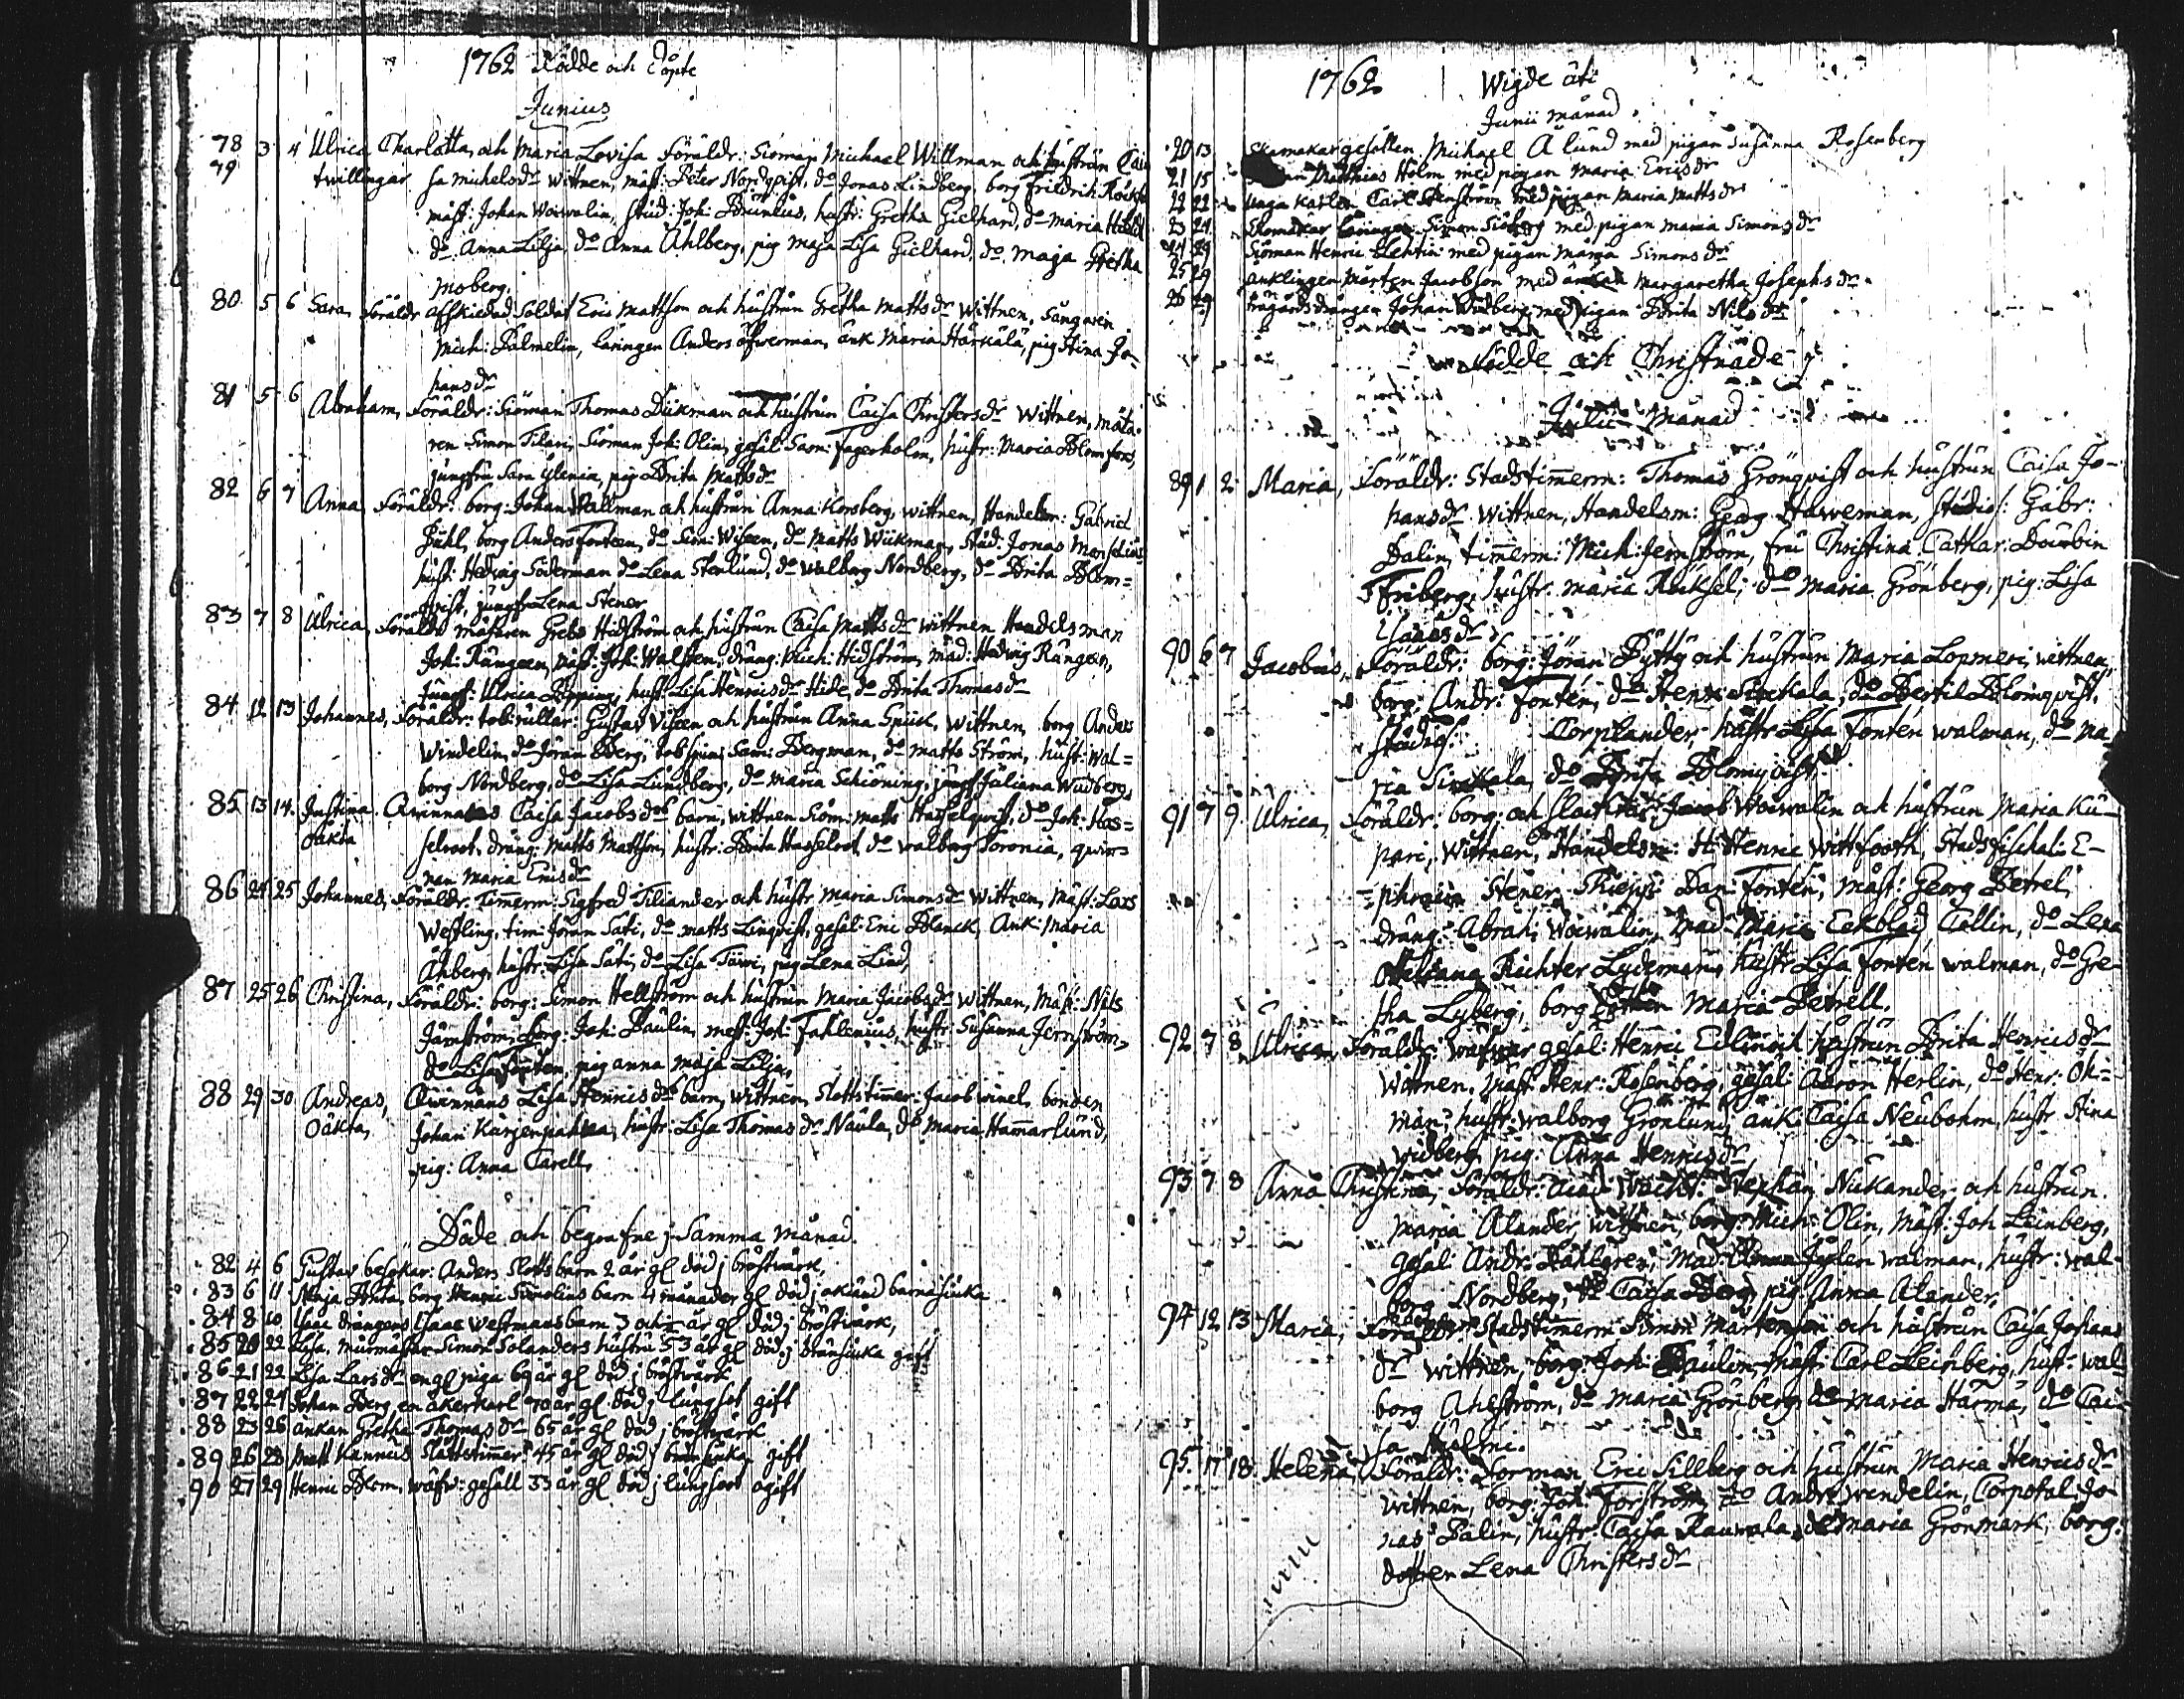 1762 Födde och Döpte
Junius
78 3 4 Ulrica Charlotta, och Maria Lovisa Föräldr: Siöman Michael Willman och hustrun Cai
79 twillingar sa Michelsdr wittnen, mäst: Peter Nordqvist, do Jonas Lindberg, borg Friedrich
mäst: Johan Woiwalin, stud: Joh: Brunlius, hustr: Gretha Gielhard, do Maria
do Anna Lilja, do Anna Ahlberg, pig Maja Lisa Gielhard, do Maja Gretha
Moberg.
80 5 6 Sara, Föräldr afskiedad Soldat Eric Mattson och hustrun Gretha Mattsdr Wittnen, Sångaren
Mich: Palmelin, läringen Anders Öfwerman, änk Maria Härkälä, pig Stina Jo-
hansdr
81 5 6 Abraham, Föräldr: Siöman Thomas Dükman och hustrun Caisa Christersdr Wittnen, mäta-
ren Simon Tilari, Siöman Joh: Olin, gesäl Sam: Fagerholm, hustr: Maria Blomfors,
jungfru Sara Ylenia, pig Brita Mattsdr
82 6 7 Anna Föräldr: borg: Johan Wallman och hustrun Anna Korsberg, wittnen, Handelsm: Gabriel
Bühl, borg Anders Fonteen, do Sim: Wiseen, do Matts Wickman, Stud: Jonas
hust: Hedvig Söderman do Lena Stenlund, do Walborg Nordberg, do Brita Blom=
qvist, jungfr Lena Stener
83 7 8 Ulrica, Föräldr mätaren Grels Hidström och hustrun Caisa Mattsdr wittnen Handelsman
Joh: Rungeen, mäst: Joh: Walsten, dräng: Mich: Hidström, mad: Hedvig Rungeen,
Jungf: Ulrica Bipping, hust Lisa Henricsdr Hide, do Brita Thomasdr
84 12 13 Johannes, Föräldr: tob: rullar: Gustav Viseen och hustrun Anna Spiik, wittnen, borg Anders
Windelin, do Jöran Berg, tobspin: Sam: Bergman, do Matts Ström, hust: Wal=
borg Nordberg, do Lisa Lundberg, do Maria Schiöning, jungf Juliana Widberg,
85 13 14. Justina Qwinnans Caisa Jacobsdrs barn, wittnen Siöm: Matts Hasselqvist, do Joh: Has=
oäkta selroot, dräng: Matts Mattson, hustr: Brita Hasselroot, do Walborg Poronia, qwin=
nan Maria Ericsdr
86 24 25 Johannes, Föräldr: Timerm: Sigfred Tiliander och hustr Maria Simonsdr Wittnen, Mäst: Lars
Westling, tim: Jöran Sati, do Matts Linqvist, gesäl: Eric Blanck, Änk: Maria
Ahberg, hustr: Lisa Sati, do Lisa Törwi, pig Lena Lind,
87 25 26 Christina, Föräldr: borg: Simon Hellström och hustrun Maria Jacobsdr Wittnen, Mäst: Nils
Järnström, borg: Joh: Paulin, mest: Joh: Fahlenius, hustr: Susanna Jernström,
do Lisa Fonten, pig anna Maja Lilja,
88 29 30 Andreas, Qwinnans Lisa Henricsdrs barn, wittnen Slottstimer: Jacob winel bonden
Oäkta, Johan Karjenpahka, hustr: Lisa Thomasdr Naula, do Maria Hamarlund,
pig: Anna Carell,
Döde och begrafne j Samma månad
82 4 6 Gustav besökar: Anders Slotts barn 2 år gl död j bröstwärk,
83 6 11 Maja Brita, borg Henric Simolius barn 4 månader gl död j okiänd barnasiuka
84 8 10 Isaac drängens Isaac Westmans barn 3 och ½ år gl död j bröstwärk,
85 20 22 Lisa, murmästar Simon Solanders hustru 53 år gl död j bränsiuka gift
86 21 22 Lisa Larsdr en gl piga 69 år gl död j bröstwärk
87 22 27 Johan Berg, en åkerkarl 70 år gl död j lungsot gift
88 23 26 änkan Gretha Thomasdr 65 år gl död j bröstwärk
89 26 28 Matt Kannius Slottstimer: 45 år gl död j bränsiuka gift
90 27 29 Henric Blom, wäfw: gesäll 33 år gl död j lungsoot ogift
1762. Wigde äti
Junii månad
20 13 Skomakargesällen Michael Alund med pigan Susanna Rosenberg
21 15 Matthias Holm med pigan Maria Ericsdr
22 22 unga Karlen Carl Stenström med pigan Maria Mattsdr
23 24 Skomakar läringen Simon Siöberg med pigan Maria Simonsdr
24 29 Siöman Henric Lehtin med pigan Maria Simonsdr
25 29 änklingen Mårten Jacobson med änkan Margaretha Josephsdr
26 29 trägårdsdrängen Johan Widberg med pigan Brita Nilsdr
Födde och Christnade j
Julii Månad
89 1 2 Maria, Föräldr: Stadstimerm: Thomas Grönqvist och hustrun Caisa Jo-
hansdr wittnen, Handelsm: Georg Haweman, Studios: Gabr:
Dalin, timerm: Mich: Jernström, fru Christina Cathar: Dourbin
Friberg, hustr: Maria Ruksel, do Maria Grönberg, pig: Lisa
Isaacsdr
90 6 7 Jacobus, Föräldr: borg: Jöran Pytty och hustrun Maria Lopmeri, wittnen,
borg: Andr: Fonten, do Henr: Sirkkala, do Bertil Blomqvist,
studios: Torpelander, hustr Lisa Fonten walman, do Ma-
ria Sirkkala, do Brita Blomqvist
91 7 9 Ulrica, Föräldr: borg: och slachtar Jacob Woiwalin och hustrun Maria Ku-
pari, Wittnen, Handelsm: Hr Henric Wittfooth, Stadsfischal: E-
phraim Stener, Dan: Fonten, mäst: Georg Petrel,
dräng: Abrah: Woiwalin, Mad: Maria Eekblad Collin, do Lena
Richter Lydeman, hustr Lisa Fonten walman, do Gre-
tha Lyberg, borg dotter Maria Petrell.
92 7 8 Ulrica, Föräldr: Wäfwar gesäl: Henric Edlin och hustrun Brita Henricsdr
Wittnen. Mäst: Henr: Rosenberg, gesäl: Aaron Herlin, do Henr: Öh=
man, hustr: Walborg Grönlund, änk: Caisa Neubohm, hustr Stina
Widberg, pig: Anna Henricsdr
93 7 8 Anna Christina, Föräldr: acad: wacht: Stephan Nukander och hustrun
Maria Alander, wittnen, borg: Mich: Olin, Mäst: Joh Leinberg,
gesäl Andr: Kahlgren, Mad: walman, hustr: wal-
borg Nordberg, do Caisa Berg, pig Anna Alander.
94 12 13 Maria, Föräldr: Stadstimerm Simon Mårtenson och hustrun Caisa Johans
dr wittnen, borg: Joh: Paulin, mäst: Carl Leinberg, hust: wal
borg Ahlström, do Maria Grönberg, do Maria Härmä, do Cai-
sa
95. 17 18. Helena, Föräldr: Forman Eric Sillberg och hustrun Maria Henricsdr
wittnen, borg: Joh: Forström, do Andr: Wendelin, Corporal Jo-
nas Palin, hustr: Caisa Rauwala, do Maria Grönmark, borg:
dottren Lena Christersdr